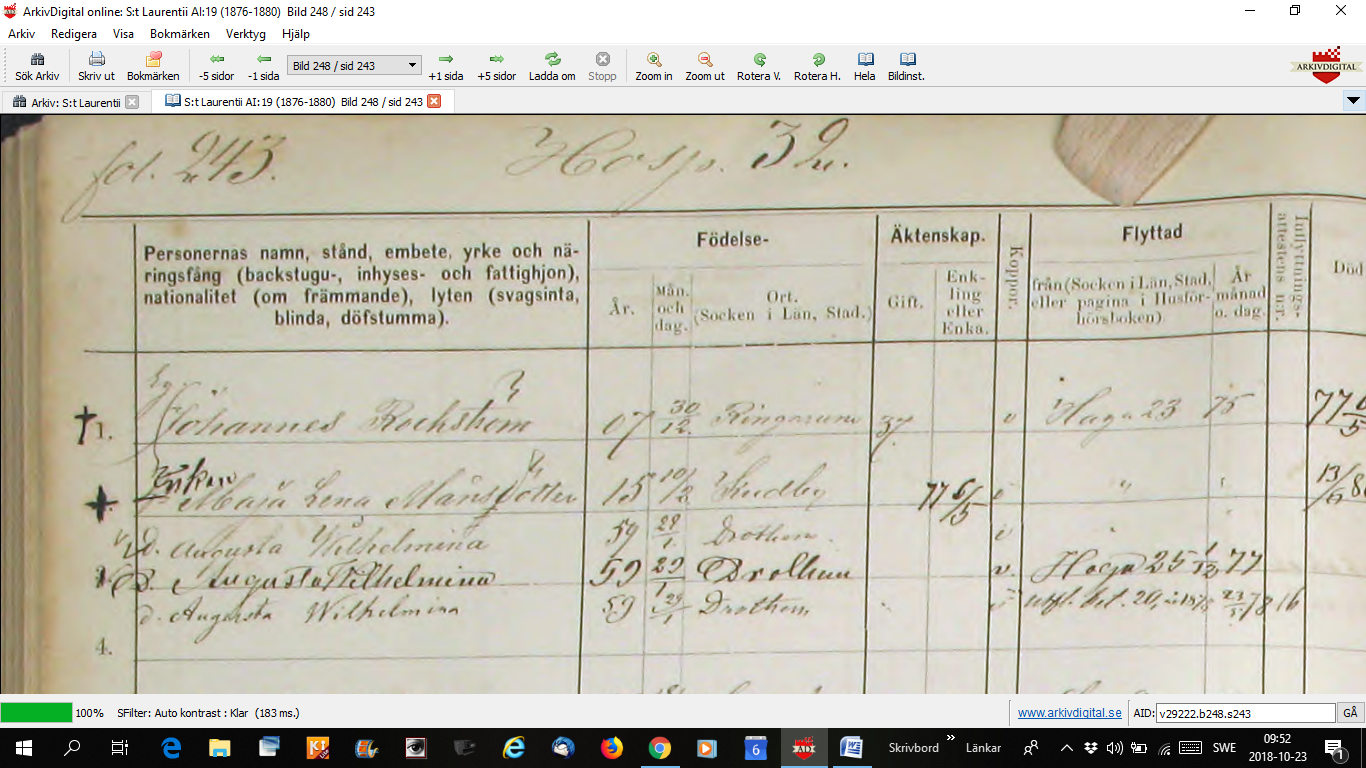 ArkivDigital online: S:t Laurentii AI:19 (1876-1880) Bild 248 / sid 243
Arkiv Redigera Visa Bokmärken Verktyg Hjälp
Sök Arkiv Skriv ut Bokmärken -5 sidor -1 sida Bild 248 / sid 243 +1 sida +5 sidor Ladda om Stopp Zoom in Zoom ut Rotera V. Rotera H. Hela Bildinst. ARKIVDIGITAL
Arkiv: S:t Laurentii S:t Laurentii AI:19 (1876-1880) Bild 248 / sid 243
fol. 243. Hosp. 32.
Personernas namn, stånd, embete, yrke och nä-
ringsfång (backstugu-, inhyses- och fattighjon),
nationalitet (om främmande), lyten (svagsinta,
blinda, döfstumma).
Födelse-
År.
Mån.
och
dag.
Ort.
(Socken i Län, Stad.)
Äktenskap.
Gift.
Enk-
ling
eller
Enka.
Koppor.
Flyttad
från (Socken i Län, Stad,
eller pagina i Husför-
hörsboken).
År
månad
o. dag.
Inflyttnings-
attestens n:r.
Död
1. Johannes Rockström 07 30/12 Ringarum 37 v Haga 23 75 77 6/5
Enkan
Maja Lena Månsdotter 15 10/2 Kudby 77 6/5 " 13/6
d. Augusta Wilhelmina 59 29/1 Drothem
D. Augusta Wilhelmina 59 29/1 Drothem v. Haga 25 1/12 77
d. Augusta Wilhelmina 59 29/1 Drothem 23/5 78 16
4.
100% SFilter: Auto kontrast : Klar (183 ms.) www.arkivdigital.se AID: v29222.b248.s243 GÅ
Skrivbord Länkar SWE 09:52
2018-10-23